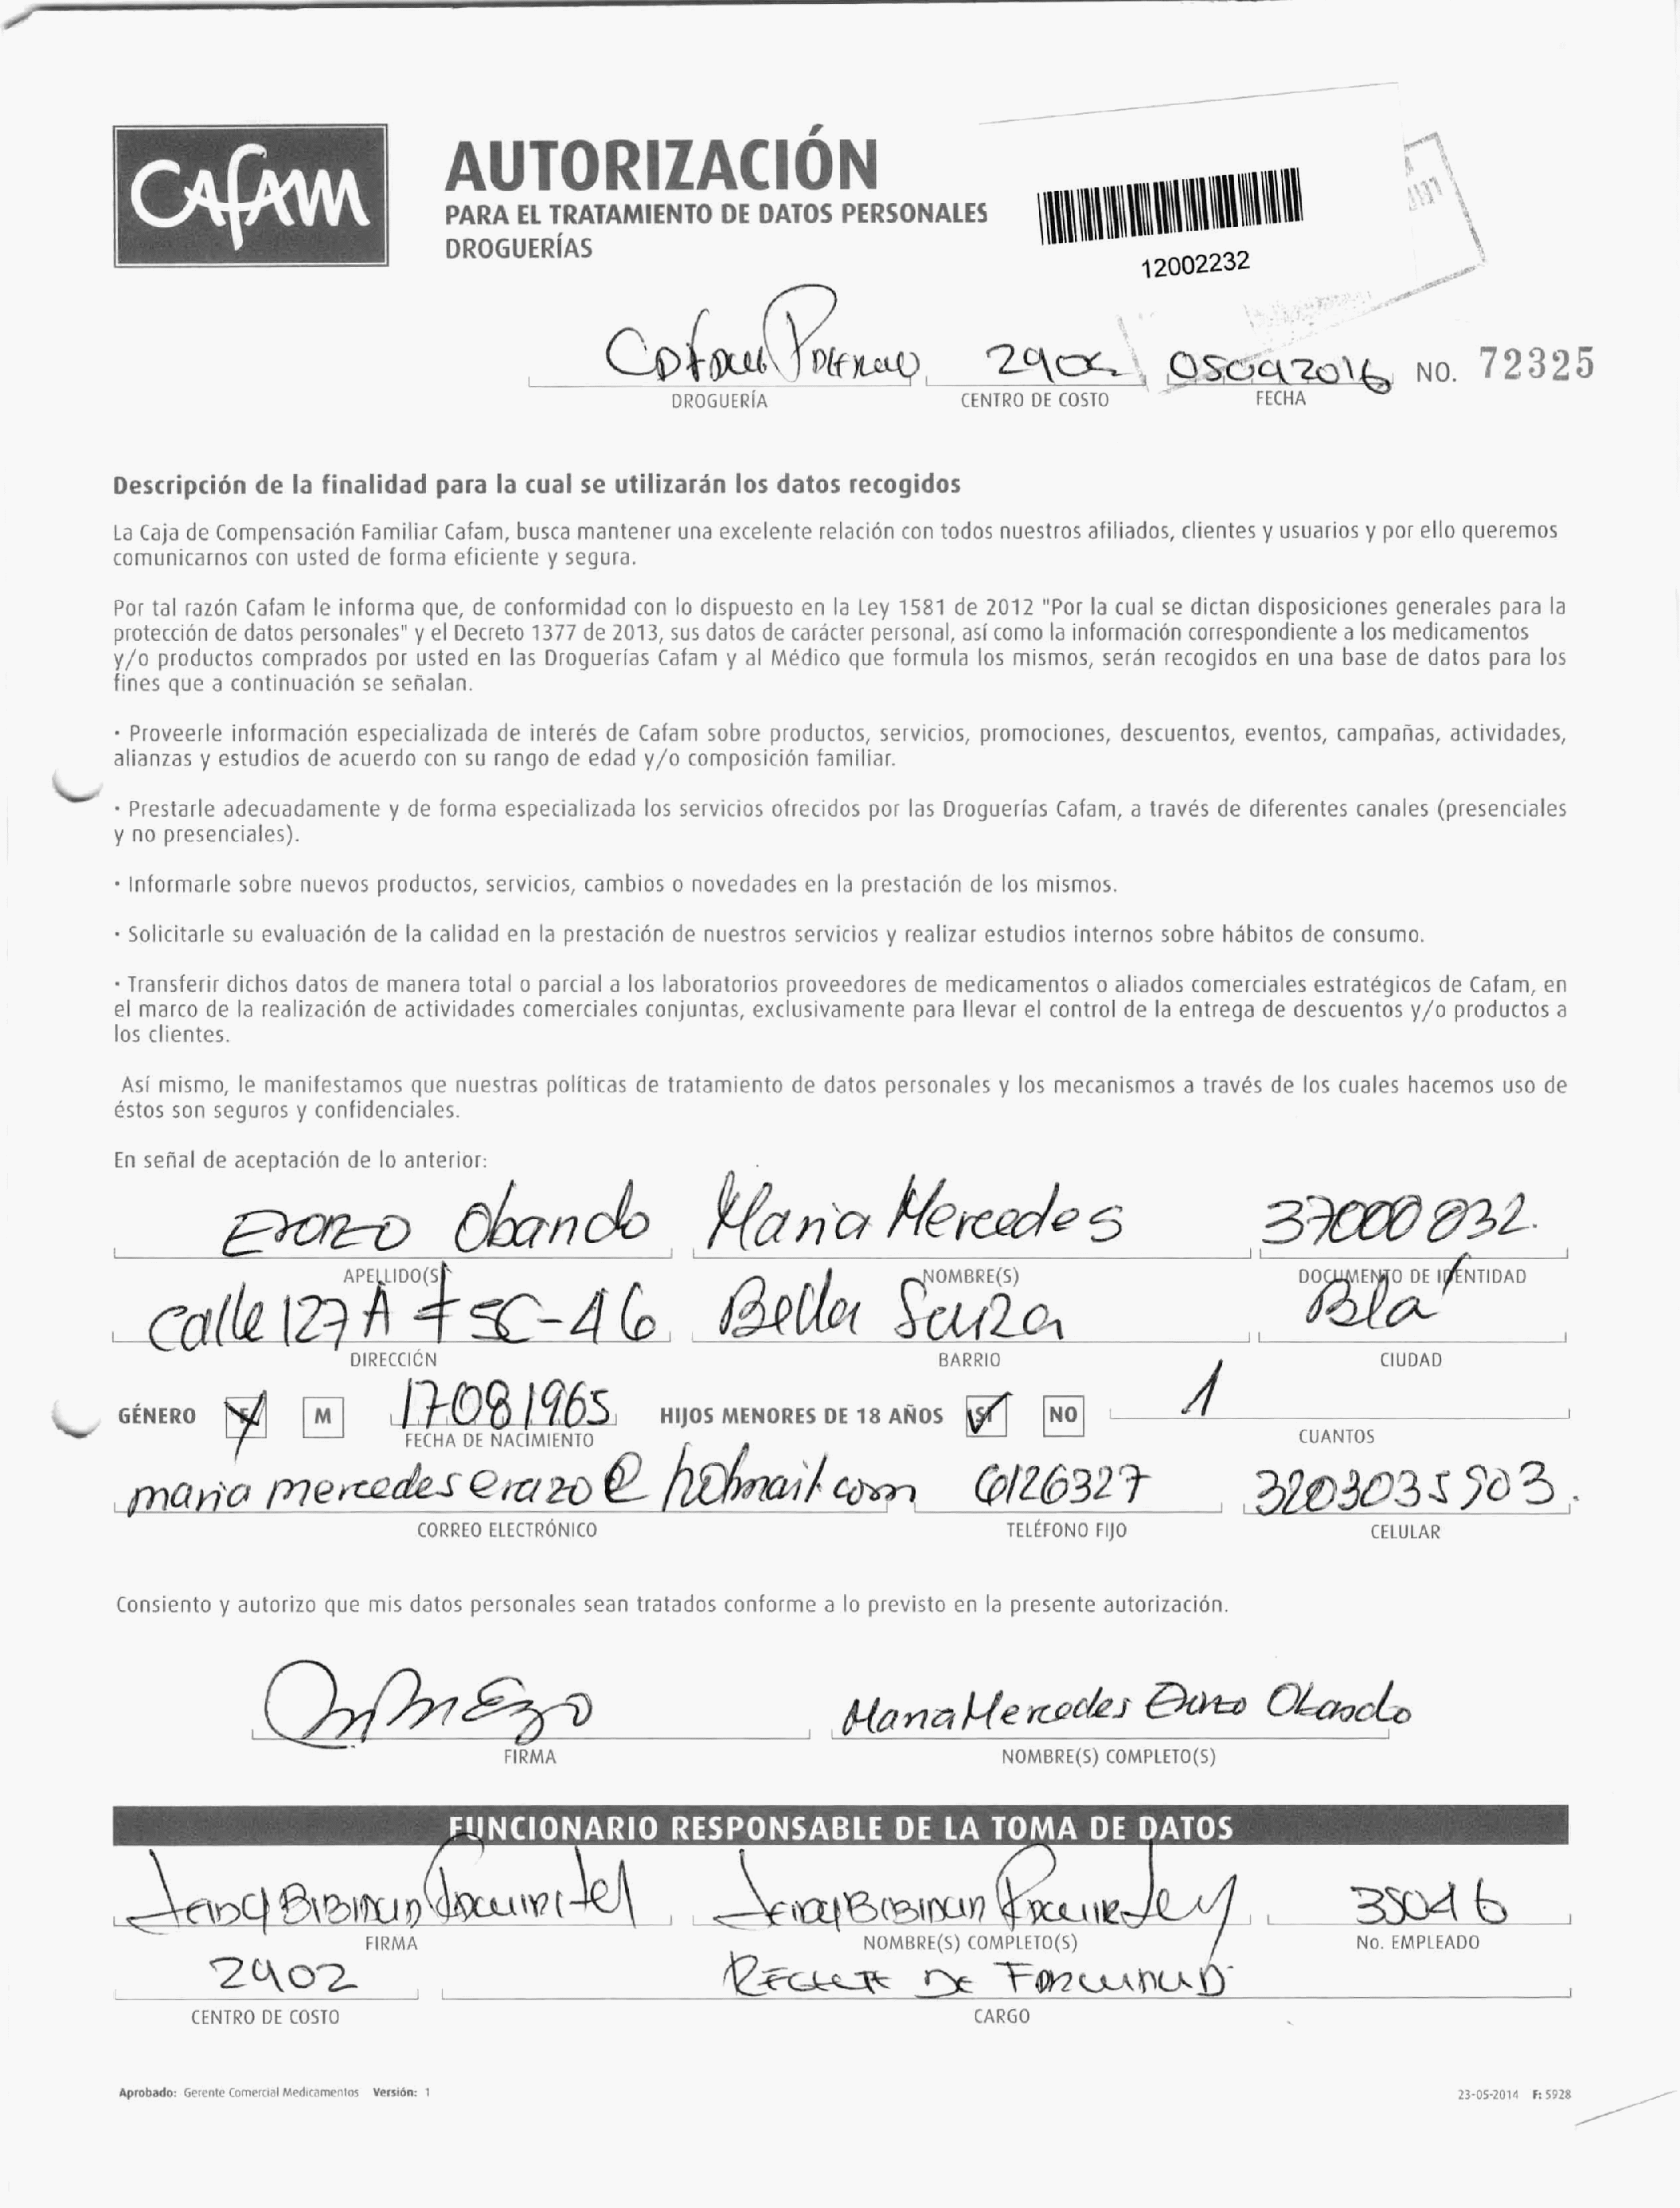 CAFAM
AUTORIZACIÓN
PARA EL TRATAMIENTO DE DATOS PERSONALES
DROGUERÍAS
12002232
05092016 NO. 72325
DROGUERÍA CENTRO DE COSTO FECHA
Descripción de la finalidad para la cual se utilizarán los datos recogidos
La Caja de Compensación Familiar Cafam, busca mantener una excelente relación con todos nuestros afiliados, clientes y usuarios y por ello queremos
comunicarnos con usted de forma eficiente y segura.
Por tal razón Cafam le informa que, de conformidad con lo dispuesto en la Ley 1581 de 2012 "Por la cual se dictan disposiciones generales para la
protección de datos personales" y el Decreto 1377 de 2013, sus datos de carácter personal, así como la información correspondiente a los medicamentos
y/o productos comprados por usted en las Droguerías Cafam y al Médico que formula los mismos, serán recogidos en una base de datos para los
fines que a continuación se señalan.
· Proveerle información especializada de interés de Cafam sobre productos, servicios, promociones, descuentos, eventos, campañas, actividades,
alianzas y estudios de acuerdo con su rango de edad y/o composición familiar.
· Prestarle adecuadamente y de forma especializada los servicios ofrecidos por las Droguerías Cafam, a través de diferentes canales (presenciales
y no presenciales).
· Informarle sobre nuevos productos, servicios, cambios o novedades en la prestación de los mismos.
· Solicitarle su evaluación de la calidad en la prestación de nuestros servicios y realizar estudios internos sobre hábitos de consumo.
· Transferir dichos datos de manera total o parcial a los laboratorios proveedores de medicamentos o aliados comerciales estratégicos de Cafam, en
el marco de la realización de actividades comerciales conjuntas, exclusivamente para llevar el control de la entrega de descuentos y/o productos a
los clientes.
Así mismo, le manifestamos que nuestras políticas de tratamiento de datos personales y los mecanismos a través de los cuales hacemos uso de
éstos son seguros y confidenciales.
En señal de aceptación de lo anterior:
Erazo Obando Maria Mercedes 37000832.
APELLIDO(S) NOMBRE(S) DOCUMENTO DE IDENTIDAD
Calle 127 A # 5C-46 Bella Suiza Bta
DIRECCIÓN BARRIO CIUDAD
GÉNERO F M 17081965 HIJOS MENORES DE 18 AÑOS SI NO 1
FECHA DE NACIMIENTO CUANTOS
maria mercedes erazo@hotmail.com 6126327 3203035903.
CORREO ELECTRÓNICO TELÉFONO FIJO CELULAR
Consiento y autorizo que mis datos personales sean tratados conforme a lo previsto en la presente autorización.
Maria Mercedes Erazo Obando
FIRMA NOMBRE(S) COMPLETO(S)
FUNCIONARIO RESPONSABLE DE LA TOMA DE DATOS
35046
FIRMA NOMBRE(S) COMPLETO(S) No. EMPLEADO
2902 Regente de Farmacia
CENTRO DE COSTO CARGO
Aprobado: Gerente Comercial Medicamentos Versión: 1 23-05-2014 F: 5928